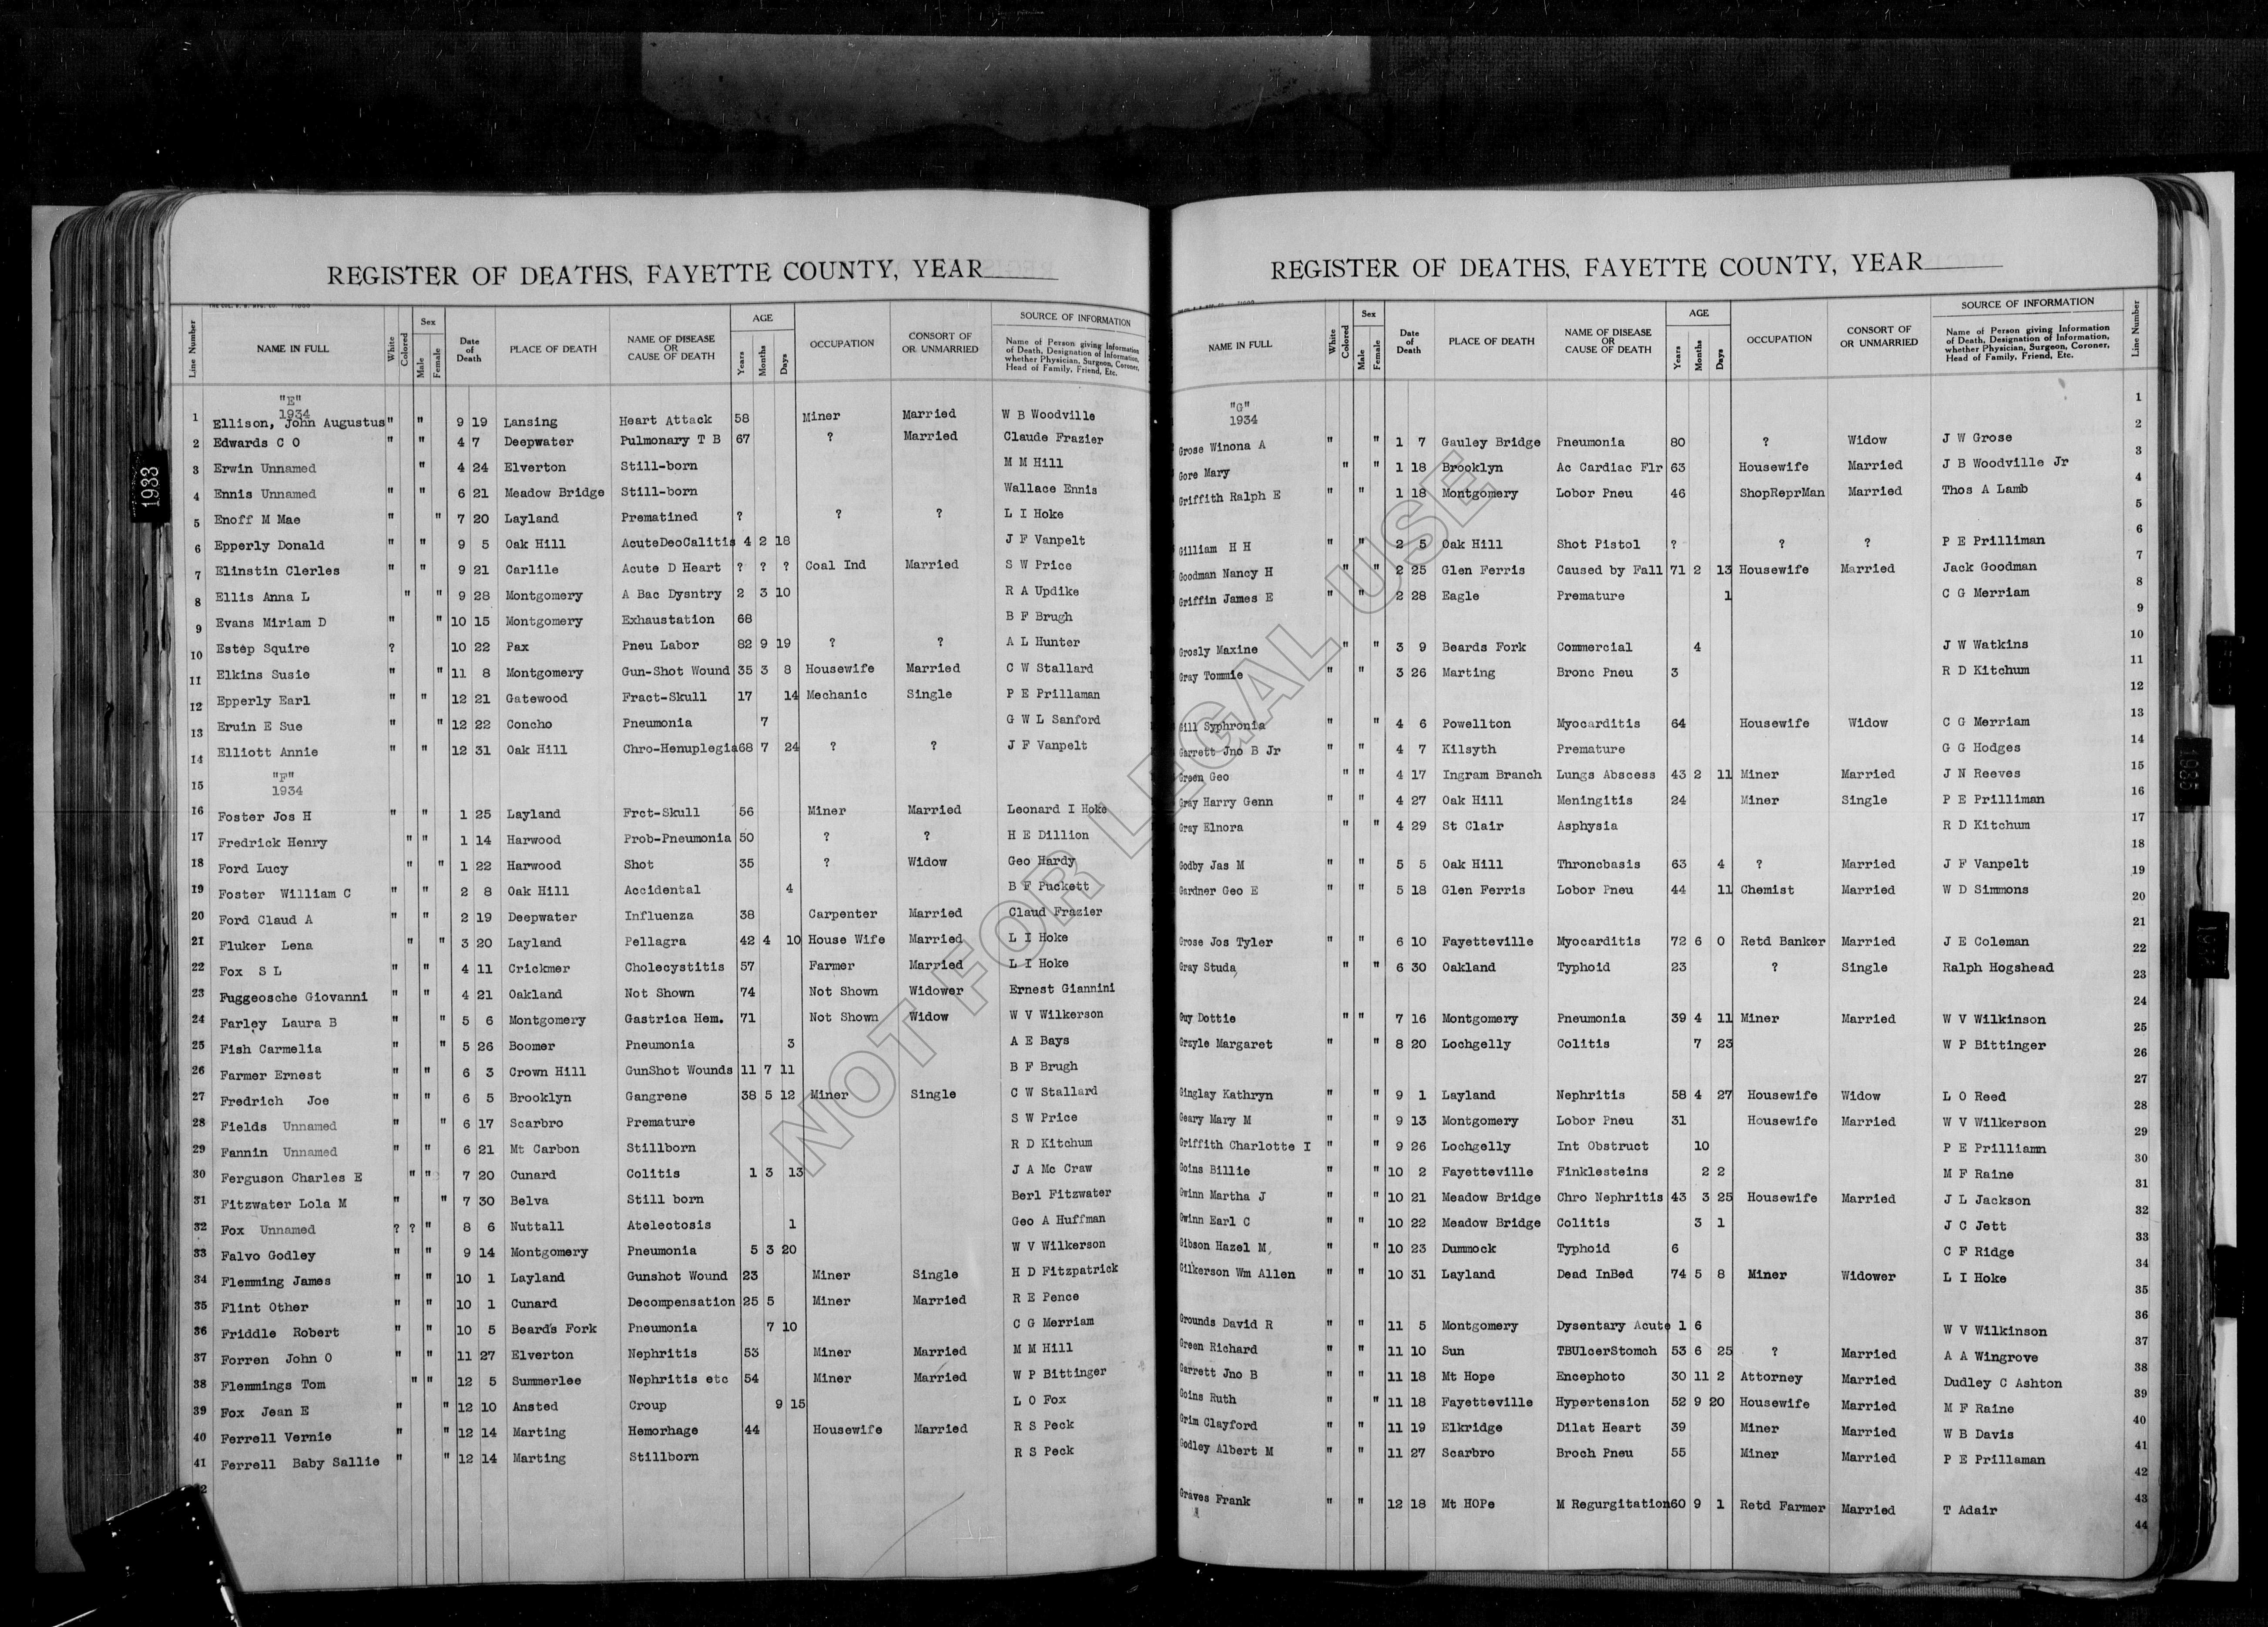 REGISTER OF DEATHS, FAYETTE COUNTY, YEAR
Line Number NAME IN FULL White Colored Sex Male Female Date of Death PLACE OF DEATH NAME OF DISEASE OR CAUSE OF DEATH AGE Years Months Days OCCUPATION CONSORT OF OR UNMARRIED SOURCE OF INFORMATION Name of Person giving Information of Death, Designation of Information, whether Physician, Surgeon, Coroner, Head of Family, Friend, Etc.
"E"
1934
1 Ellison, John Augustus " " 9 19 Lansing Heart Attack 58 Miner Married W B Woodville
2 Edwards C O " " 4 7 Deepwater Pulmonary T B 67 ? Married Claude Frazier
3 Erwin Unnamed " 4 24 Elverton Still-born M M Hill
4 Ennis Unnamed " " 6 21 Meadow Bridge Still-born Wallace Ennis
5 Enoff M Mae " " 7 20 Layland Prematined ? ? ? L I Hoke
6 Epperly Donald " " 9 5 Oak Hill AcuteDeoCalitis 4 2 18 J F Vanpelt
7 Elinstin Clerles " " 9 21 Carlile Acute D Heart ? ? ? Coal Ind Married S W Price
8 Ellis Anna L " " 9 28 Montgomery A Bac Dysntry 2 3 10 R A Updike
9 Evans Miriam D " " 10 15 Montgomery Exhaustation 68 B F Brugh
10 Estep Squire ? 10 22 Pax Pneu Labor 82 9 19 ? ? A L Hunter
11 Elkins Susie " " 11 8 Montgomery Gun-Shot Wound 35 3 8 Housewife Married C W Stallard
12 Epperly Earl " " 12 21 Gatewood Fract-Skull 17 14 Mechanic Single P E Prillaman
13 Eruin E Sue " " 12 22 Concho Pneumonia 7 G W L Sanford
14 Elliott Annie " " 12 31 Oak Hill Chro-Henuplegia 68 7 24 ? ? J F Vanpelt
15 "F"
1934
16 Foster Jos H " " 1 25 Layland Frct-Skull 56 Miner Married Leonard I Hoke
17 Fredrick Henry " " 1 14 Harwood Prob-Pneumonia 50 ? ? H E Dillion
18 Ford Lucy " " 1 22 Harwood Shot 35 ? Widow Geo Hardy
19 Foster William C " " 2 8 Oak Hill Accidental 4 B F Puckett
20 Ford Claud A " " 2 19 Deepwater Influenza 38 Carpenter Married Claud Frazier
21 Fluker Lena " " 3 20 Layland Pellagra 42 4 10 House Wife Married L I Hoke
22 Fox S L " " 4 11 Crickmer Cholecystitis 57 Farmer Married L I Hoke
23 Fuggeosche Giovanni " " 4 21 Oakland Not Shown 74 Not Shown Widower Ernest Giannini
24 Farley Laura B " " 5 6 Montgomery Gastrica Hem. 71 Not Shown Widow W V Wilkerson
25 Fish Carmelia " " 5 26 Boomer Pneumonia 3 A E Bays
26 Farmer Ernest " " 6 3 Crown Hill GunShot Wounds 11 7 11 B F Brugh
27 Fredrich Joe " " 6 5 Brooklyn Gangrene 38 5 12 Miner Single C W Stallard
28 Fields Unnamed " " 6 17 Scarbro Premature S W Price
29 Fannin Unnamed " " 6 21 Mt Carbon Stillborn R D Kitchum
30 Ferguson Charles E " " 7 20 Cunard Colitis 1 3 13 J A Mc Craw
31 Fitzwater Lola M " " 7 30 Belva Still born Berl Fitzwater
32 Fox Unnamed ? ? " 8 6 Nuttall Atelectosis 1 Geo A Huffman
33 Falvo Godley " " 9 14 Montgomery Pneumonia 5 3 20 W V Wilkerson
34 Flemming James " " 10 1 Layland Gunshot Wound 23 Miner Single H D Fitzpatrick
35 Flint Other " " 10 1 Cunard Decompensation 25 5 Miner Married R E Pence
36 Friddle Robert " " 10 5 Beards Fork Pneumonia 7 10 C G Merriam
37 Forren John O " " 11 27 Elverton Nephritis 53 Miner Married M M Hill
38 Flemmings Tom " " 12 5 Summerlee Nephritis etc 54 Miner Married W P Bittinger
39 Fox Jean E " " 12 10 Ansted Croup 9 15 L O Fox
40 Ferrell Vernie " " 12 14 Marting Hemorhage 44 Housewife Married R S Peck
41 Ferrell Baby Sallie " " 12 14 Marting Stillborn R S Peck
1933
REGISTER OF DEATHS, FAYETTE COUNTY, YEAR
NAME IN FULL White Colored Sex Male Female Date of Death PLACE OF DEATH NAME OF DISEASE OR CAUSE OF DEATH AGE Years Months Days OCCUPATION CONSORT OF OR UNMARRIED SOURCE OF INFORMATION Name of Person giving Information of Death, Designation of Information, whether Physician, Surgeon, Coroner, Head of Family, Friend, Etc. Line Number
1
"G"
1934 2
Grose Winona A " " 1 7 Gauley Bridge Pneumonia 80 ? Widow J W Grose 3
Gore Mary " " 1 18 Brooklyn Ac Cardiac Flr 63 Housewife Married J B Woodville Jr 4
Griffith Ralph E " " 1 18 Montgomery Lobor Pneu 46 ShopReprMan Married Thos A Lamb 5
6
Gilliam H H " " 2 5 Oak Hill Shot Pistol ? ? ? P E Prilliman 7
Goodman Nancy H " " 2 25 Glen Ferris Caused by Fall 71 2 13 Housewife Married Jack Goodman 8
Griffin James E " " 2 28 Eagle Premature 1 C G Merriam 9
10
Grosly Maxine " " 3 9 Beards Fork Commercial 4 J W Watkins 11
Gray Tommie " " 3 26 Marting Bronc Pneu 3 R D Kitchum 12
13
Gill Syphronia " " 4 6 Powellton Myocarditis 64 Housewife Widow C G Merriam 14
Garrett Jno B Jr " " 4 7 Kilsyth Premature G G Hodges 15
Green Geo " " 4 17 Ingram Branch Lungs Abscess 43 2 11 Miner Married J N Reeves 16
Gray Harry Genn " " 4 27 Oak Hill Meningitis 24 Miner Single P E Prilliman 17
Gray Elnora " " 4 29 St Clair Asphysia R D Kitchum 18
Godby Jas M " " 5 5 Oak Hill Throncbasis 63 4 ? Married J F Vanpelt 19
Gardner Geo E " " 5 18 Glen Ferris Lobor Pneu 44 11 Chemist Married W D Simmons 20
21
Grose Jos Tyler " " 6 10 Fayetteville Myocarditis 72 6 0 Retd Banker Married J E Coleman 22
Gray Studa " " 6 30 Oakland Typhoid 23 ? Single Ralph Hogshead 23
24
Guy Dottie " " 7 16 Montgomery Pneumonia 39 4 11 Miner Married W V Wilkinson 25
Grzyle Margaret " " 8 20 Lochgelly Colitis 7 23 W P Bittinger 26
27
Ginglay Kathryn " " 9 1 Layland Nephritis 58 4 27 Housewife Widow L O Reed 28
Geary Mary M " " 9 13 Montgomery Lobor Pneu 31 Housewife Married W V Wilkerson 29
Griffith Charlotte I " " 9 26 Lochgelly Int Obstruct 10 P E Prilliamn 30
Goins Billie " " 10 2 Fayetteville Finklesteins 2 2 M F Raine 31
Gwinn Martha J " " 10 21 Meadow Bridge Chro Nephritis 43 3 25 Housewife Married J L Jackson 32
Gwinn Earl C " " 10 22 Meadow Bridge Colitis 3 1 J C Jett 33
Gibson Hazel M, " " 10 23 Dummock Typhoid 6 C F Ridge 34
Gilkerson Wm Allen " " 10 31 Layland Dead InBed 74 5 8 Miner Widower L I Hoke 35
36
Grounds David R " " 11 5 Montgomery Dysentary Acute 1 6 W V Wilkinson 37
Green Richard " " 11 10 Sun TBUlcerStomch 53 6 25 ? Married A A Wingrove 38
Garrett Jno B " " 11 18 Mt Hope Encephoto 30 11 2 Attorney Married Dudley C Ashton 39
Goins Ruth " " 11 18 Fayetteville Hypertension 52 9 20 Housewife Married M F Raine 40
Grim Clayford " " 11 19 Elkridge Dilat Heart 39 Miner Married W B Davis 41
Godley Albert M " " 11 27 Scarbro Broch Pneu 55 Miner Married P E Prillaman 42
Graves Frank " " 12 18 Mt HOPe M Regurgitation 60 9 1 Retd Farmer Married T Adair 43
44
NOT FOR LEGAL USE